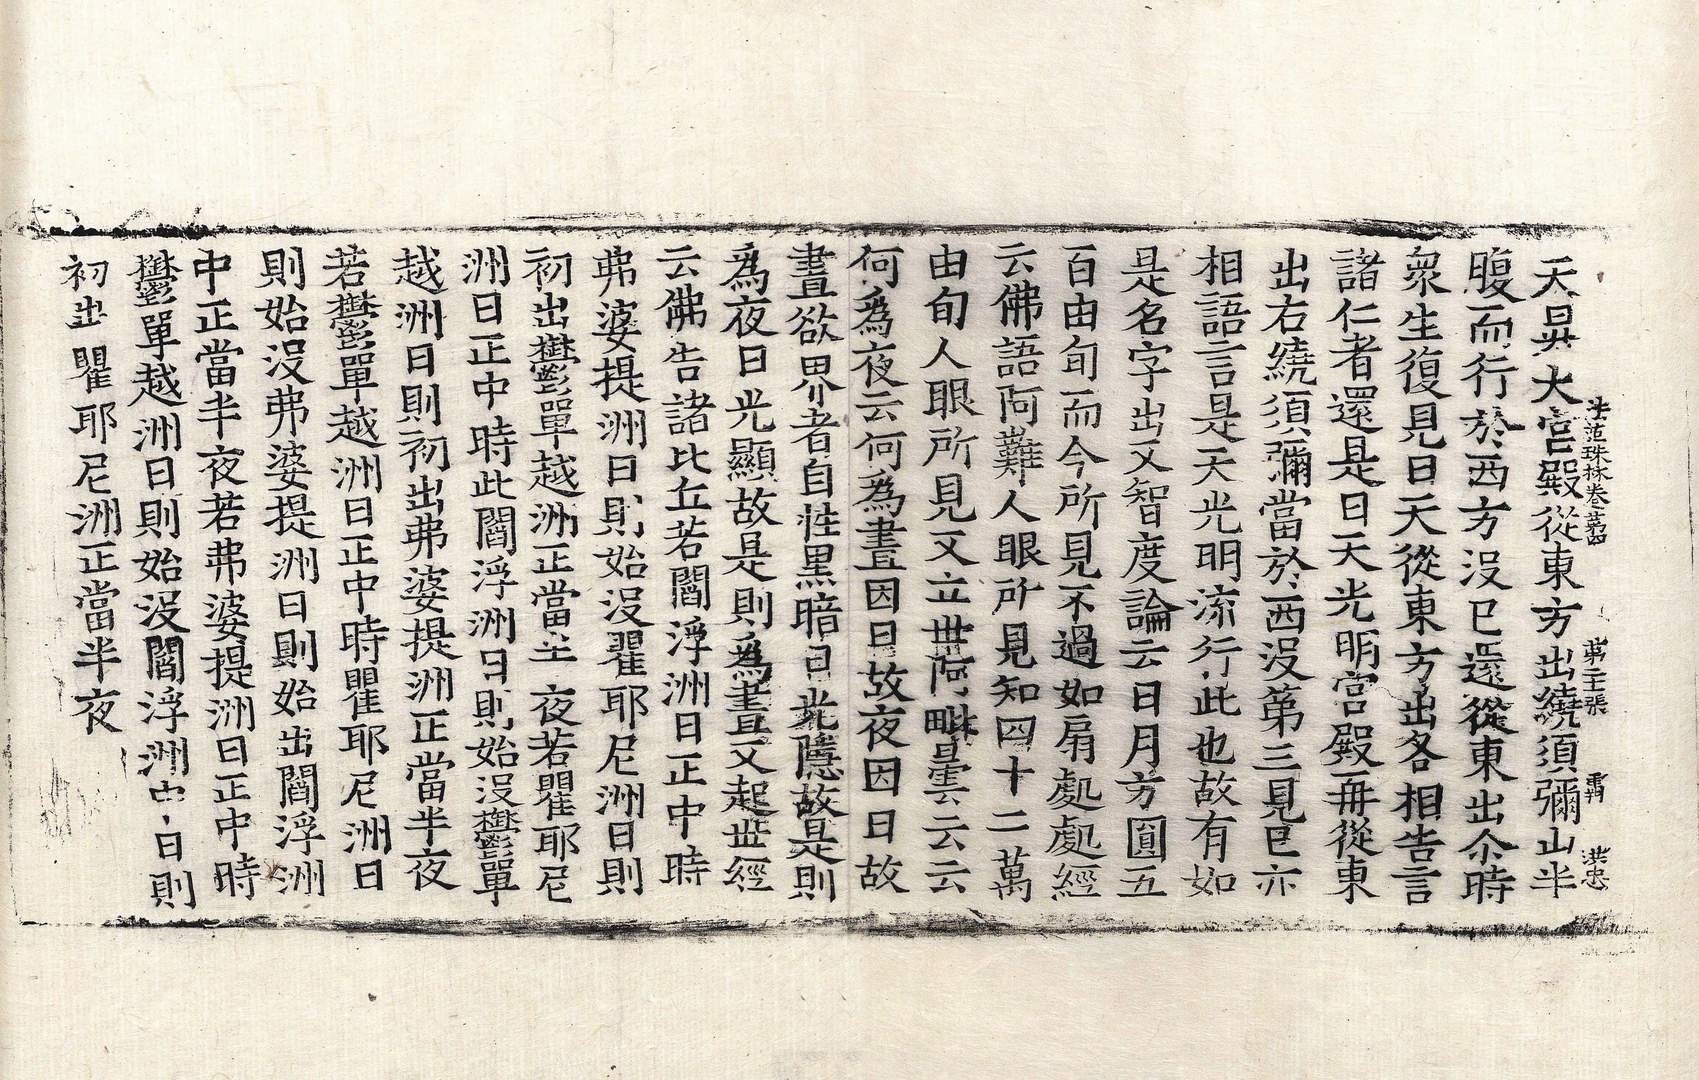 法苑珠林卷苐四 苐二十張 覇 洪忠
天是大宫殿從東方出繞須彌山半
腹而行於西方没已還從東出尒時
衆生復見日天從東方出各相告言
諸仁者還是日天光明宫殿再從東
出右繞須彌當於西没第三見已亦
相語言是天光明流行此也故有如
是名字出又智度論云日月方圓五
百由旬而今所見不過如扇處處經
云佛語阿難人眼所見知四十二萬
由旬人眼所見又立世阿毗曇云云
何為夜云何為晝因日故夜因日故
晝欲界者自性黒暗日光隱故是則
為夜日光顯故是則為晝又起世經
云佛告諸比丘若閻浮洲日正中時
弗婆提洲日則始没瞿耶尼洲日則
初出欝單越洲正當半夜若瞿耶尼
洲日正中時此閻浮洲日則始没欝單
越洲日則初出弗婆提洲正當半夜
若欝單越洲日正中時瞿耶尼洲日
則始没弗婆提洲日則始出閻浮洲
中正當半夜若弗婆提洲日正中時
欝單越洲日則始没閻浮洲中日則
初出瞿耶尼洲正當半夜